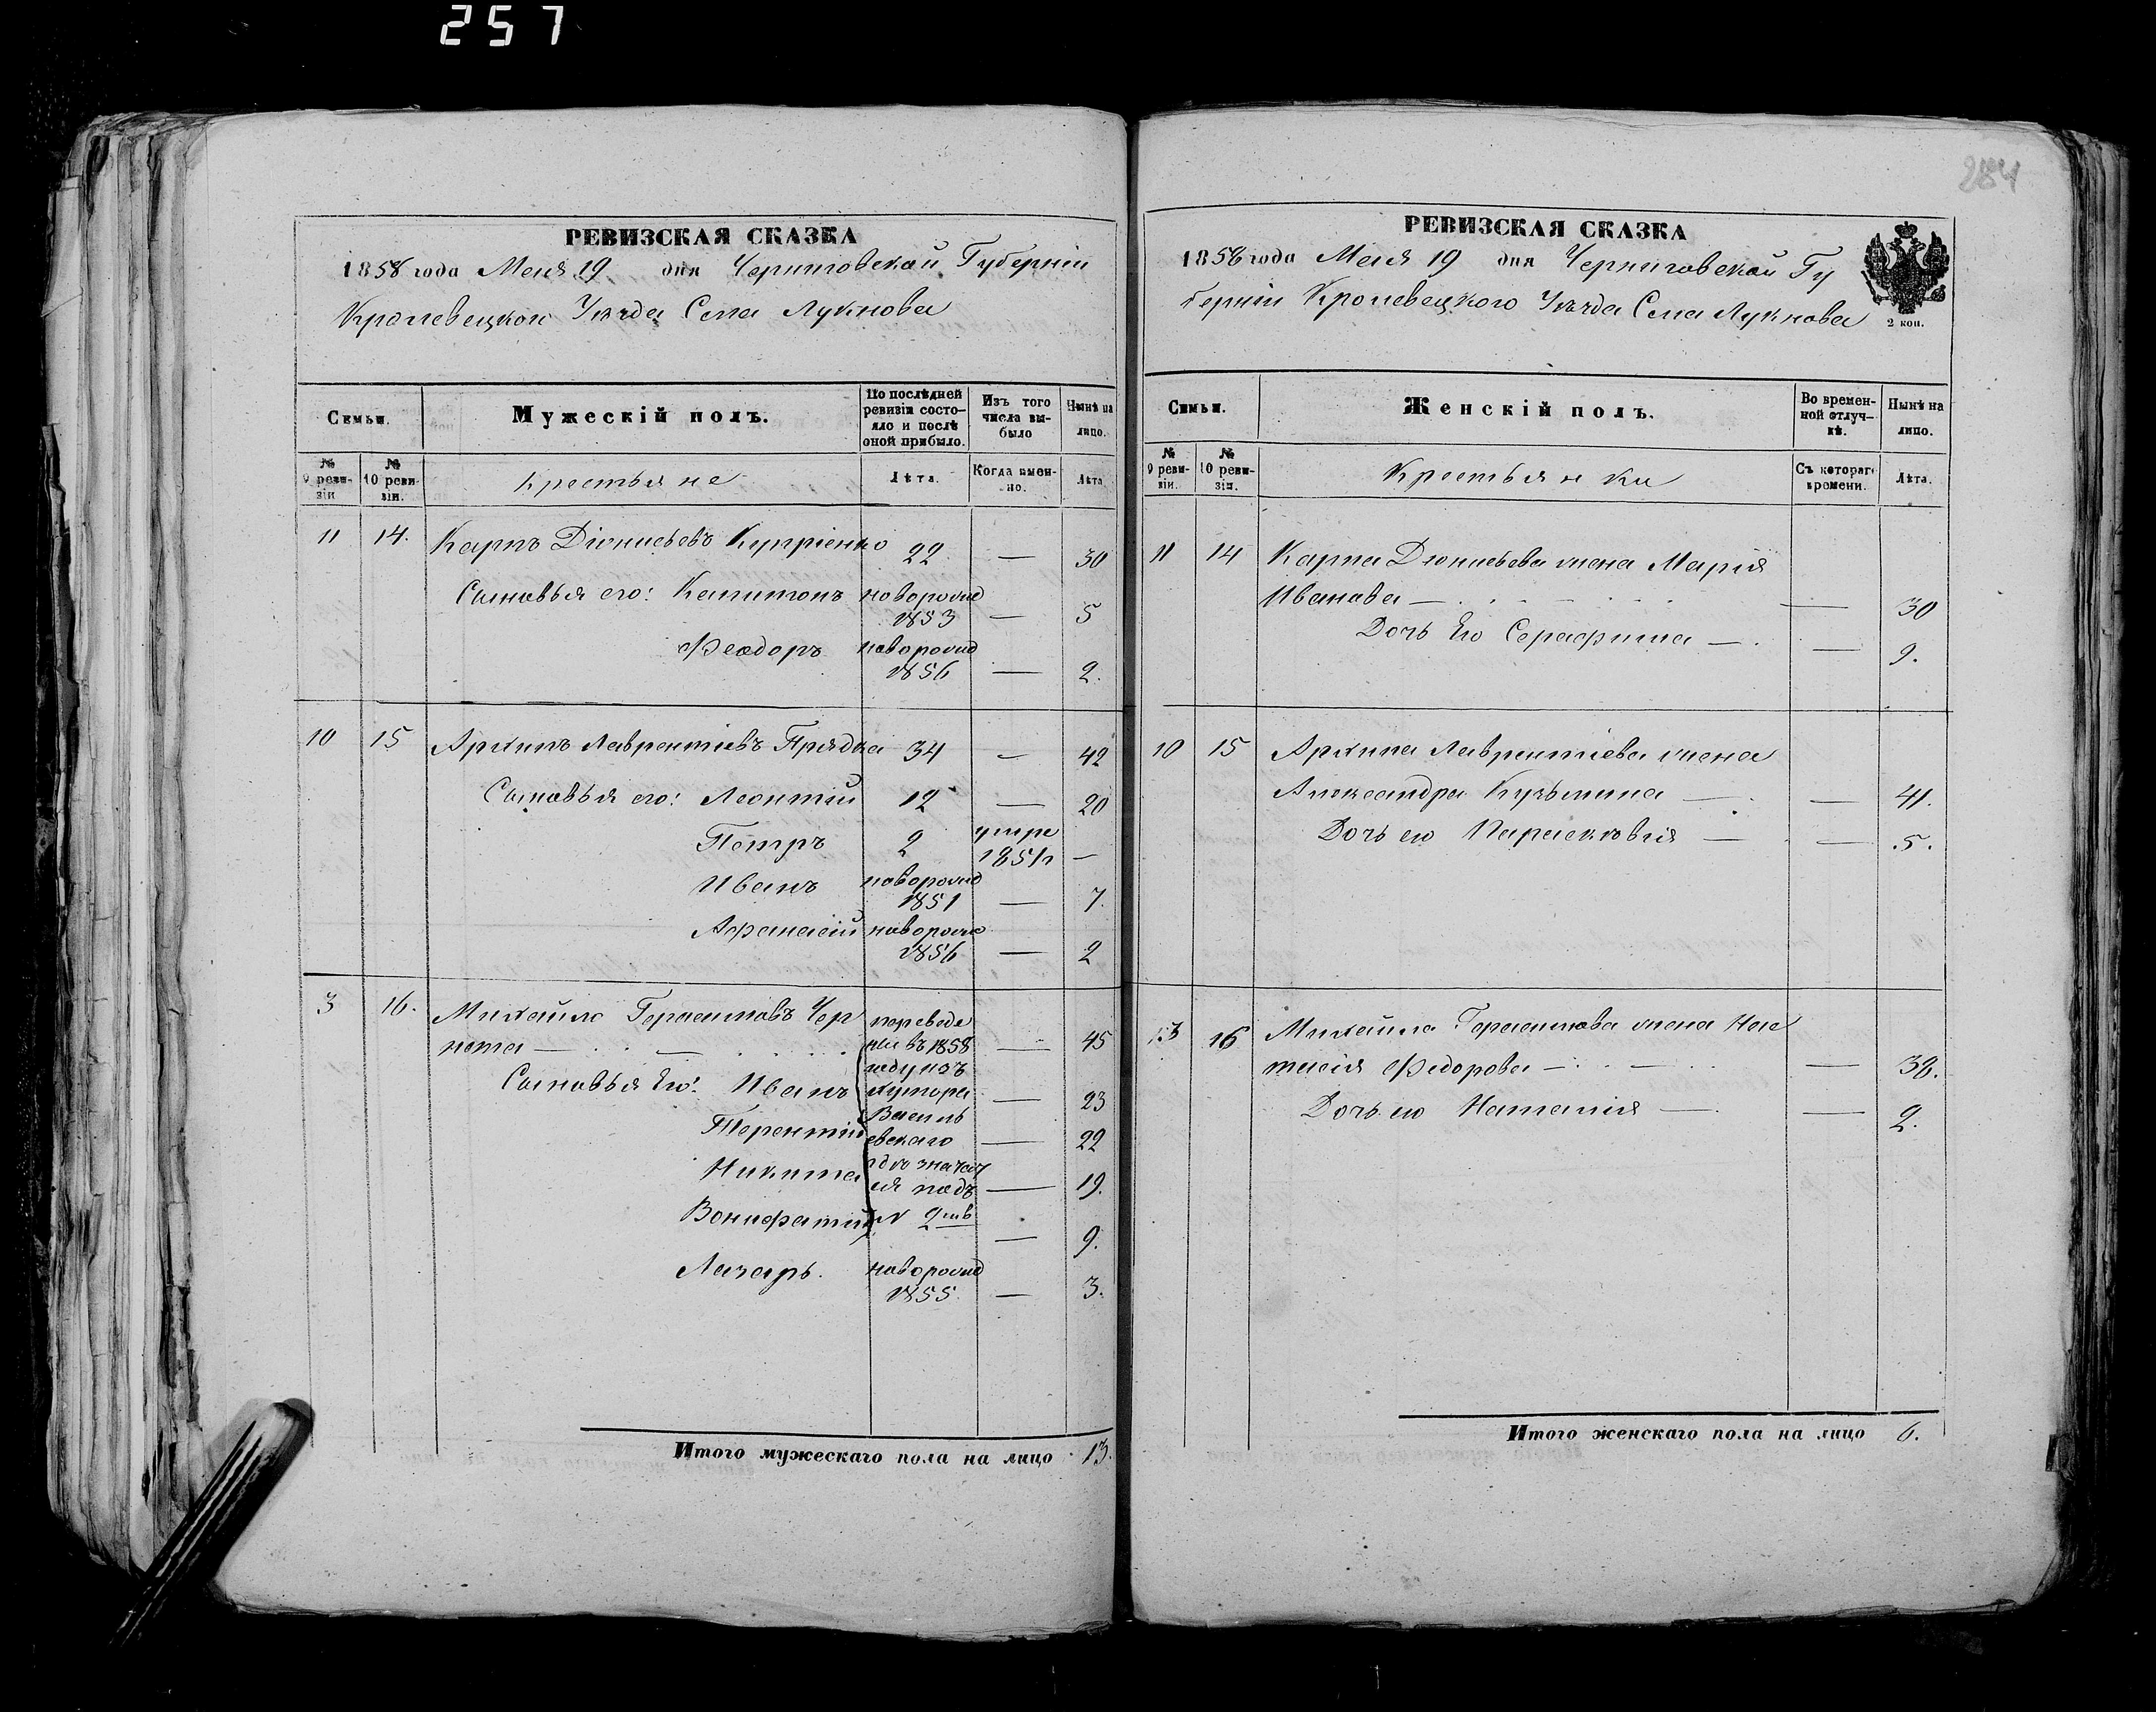 257
284
РЕВИЗСКАЯ СКАЗКА
1858 года Мая 19 дня Черниговской Губерніи
Кролевецкого Уѣзда Села Лукнова
Семьи.
Мужескій полъ.
По послѣдней ревизіи состояло и послѣ оной прибыло.
Изъ того числа выбыло
Нынѣ на лицо.
№ 9 ревизіи
№ 10 ревизіи.
Крестьяне
Лѣта.
Когда именно.
Лѣта
11 14. Карпъ Діонисьевъ Купріенко 22 — 30
Сыновья его: Капитонъ новорожд
1853 — 5
Феодоръ новорожд
1856 — 2.
10 15 Архипъ Лаврентіевъ Прядка 34 — 42
Сыновья его: Леонтій 12 — 20
Петръ 2 умре
1851г —
Иванъ новорожд
1851 — 7.
Афанасій новорожд
1856 — 2
3 16. Михайло Герасимовъ Чер переведе
нота — ны въ 1858 — 45
году изъ
Сыновья Его: Иванъ хутора — 23
Василь
Терентій евскаго — 22
Никита гдѣ значат
ся подъ — 19.
Вонифатій № 2мъ — 9.
Лазарь. новорожд
1855. — 3.
Итого мужескаго пола на лицо 13.
РЕВИЗСКАЯ СКАЗКА
1858 года Мая 19 дня Черниговской Гу
берніи Кролевецкого Уѣзда Села Лукнова
2 коп.
Семьи.
Женскій полъ.
Во временной отлучкѣ.
Нынѣ на лицо.
№ 9 ревизіи.
№ 10 ревизіи.
Крестьянки
Съ котораго времени.
Лѣта.
11 14 Карпа Діонисьева жена Марія
Иванова — — 30
Дочь Его Серафима — — 9.
10 15 Архипа Лаврентіева жена
Александра Кузьмина — — 41.
Дочь его Параскковія — — 5.
3 16 Михайла Герасимова жена Нас
тасія Федорова — — 38.
Дочь его Наталія — — 2.
Итого женскаго пола на лицо 6.